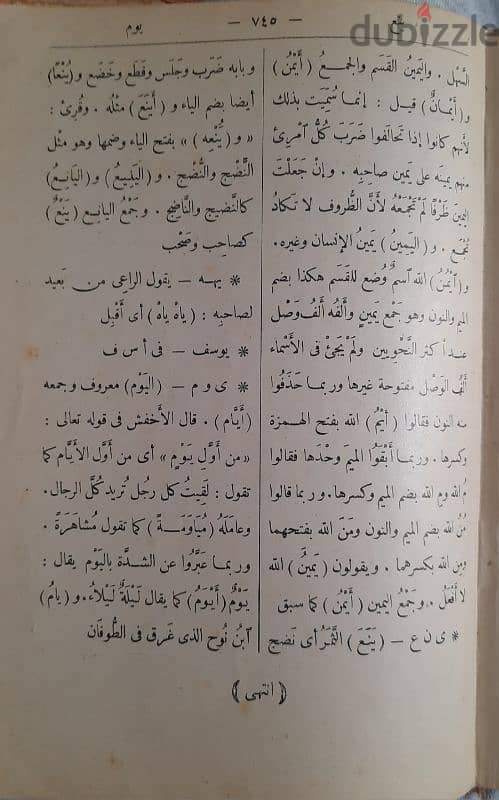 dubizzle
ينع
— ٧٤٥ —
يوم
السَّهْل . واليَمينُ القَسَم والجمـــع ( أَيْمُن )
و( أَيْمانٌ ) قيـل : إنمـا سُمِّيَت بذلك
لأنهم كانوا إذا تحالَفوا ضَرَبَ كُلُّ ٱمْرِئ
منهم يمينَه على يَمين صاحِبِه . وإنْ جَعَلْتَ
اليمين ظَرْفًا لم تَجْمَعْهُ لأَنَّ الظُّروف لا تَكادُ
تُجْمَع . و( اليَمينُ ) يَمينُ الإنسان وغيرِه .
و( أَيْمُنُ ) الله ٱسْمٌ وُضِع للقَسَم هكذا بضم
الميم والنون وهو جَمْع يَمينٍ وأَلِفُه أَلِفُ وَصْل
عنــد أكثر النَّحْويين ولم يَجِئْ فى الأَسْماء
أَلِفُ الوَصْل مفتوحة غيرها وربمـا حَذَفُوا
منه النون فقالوا ( أَيْمُ ) الله بفتح الهمـزة
وكسرها . وربمـا أَبْقَوُا الميمَ وَحْدَها فقالوا
مُ الله ومِ الله بضم الميم وكسرها . وربما قالوا
مُنُ الله بضم الميم والنون ومَنَ الله بفتحهما
ومِنِ الله بكسرهما . ويقولون ( يَمينُ ) الله
لا أَفْعَلُ . وجَمْعُ اليمين ( أَيْمُنٌ ) كما سبق
* ى ن ع — ( يَنَعَ ) الثَّمَرُ أى نَضِج
وبابه ضَرَب وجَلَس وقَطَع وخَضَع و( يُنْعًا )
أيضا بضم الياء و( أَيْنَعَ ) مثْلُه . وقُرِئ :
« و( يُنْعِه ) » بفتح الياء وضمها وهو مِثْل
النَّضْج والنُّضْج . و( اليَنِيعُ ) و( اليَانِعُ )
كالنَّضيج والنَّاضِج . وجَمْعُ اليانِـع ( يَنْعٌ )
كصاحِب وصَحْب
* يهـه — يقول الراعِى مِن بَعيد
لصاحِبِه : ( ياهْ ياهْ ) أى أَقْبِل
* يوسف — فى أ س ف
* ى و م — ( اليَوْم ) معروف وجمعه
( أَيَّام ) . قال الأَخْفَش فى قوله تعالى :
« من أَوَّلِ يَوْمٍ » أى من أَوَّل الأَيَّام كما
تقول : لَقِيتُ كلَّ رجُل تُريد كُلَّ الرجال .
وعامَلَهُ ( مُيَاوَمَـــةً ) كما تقول مُشاهَرَةً .
وربمـا عَبَّرُوا عن الشدَّة باليَوْم يقال :
يَوْمٌ ( أَيْوَمُ ) كما يقال لَيْلَةٌ لَيْلاَءُ . و( يامُ )
ٱبْنُ نُوح الذى غَرِق فى الطُّوفَان
( انتهى )